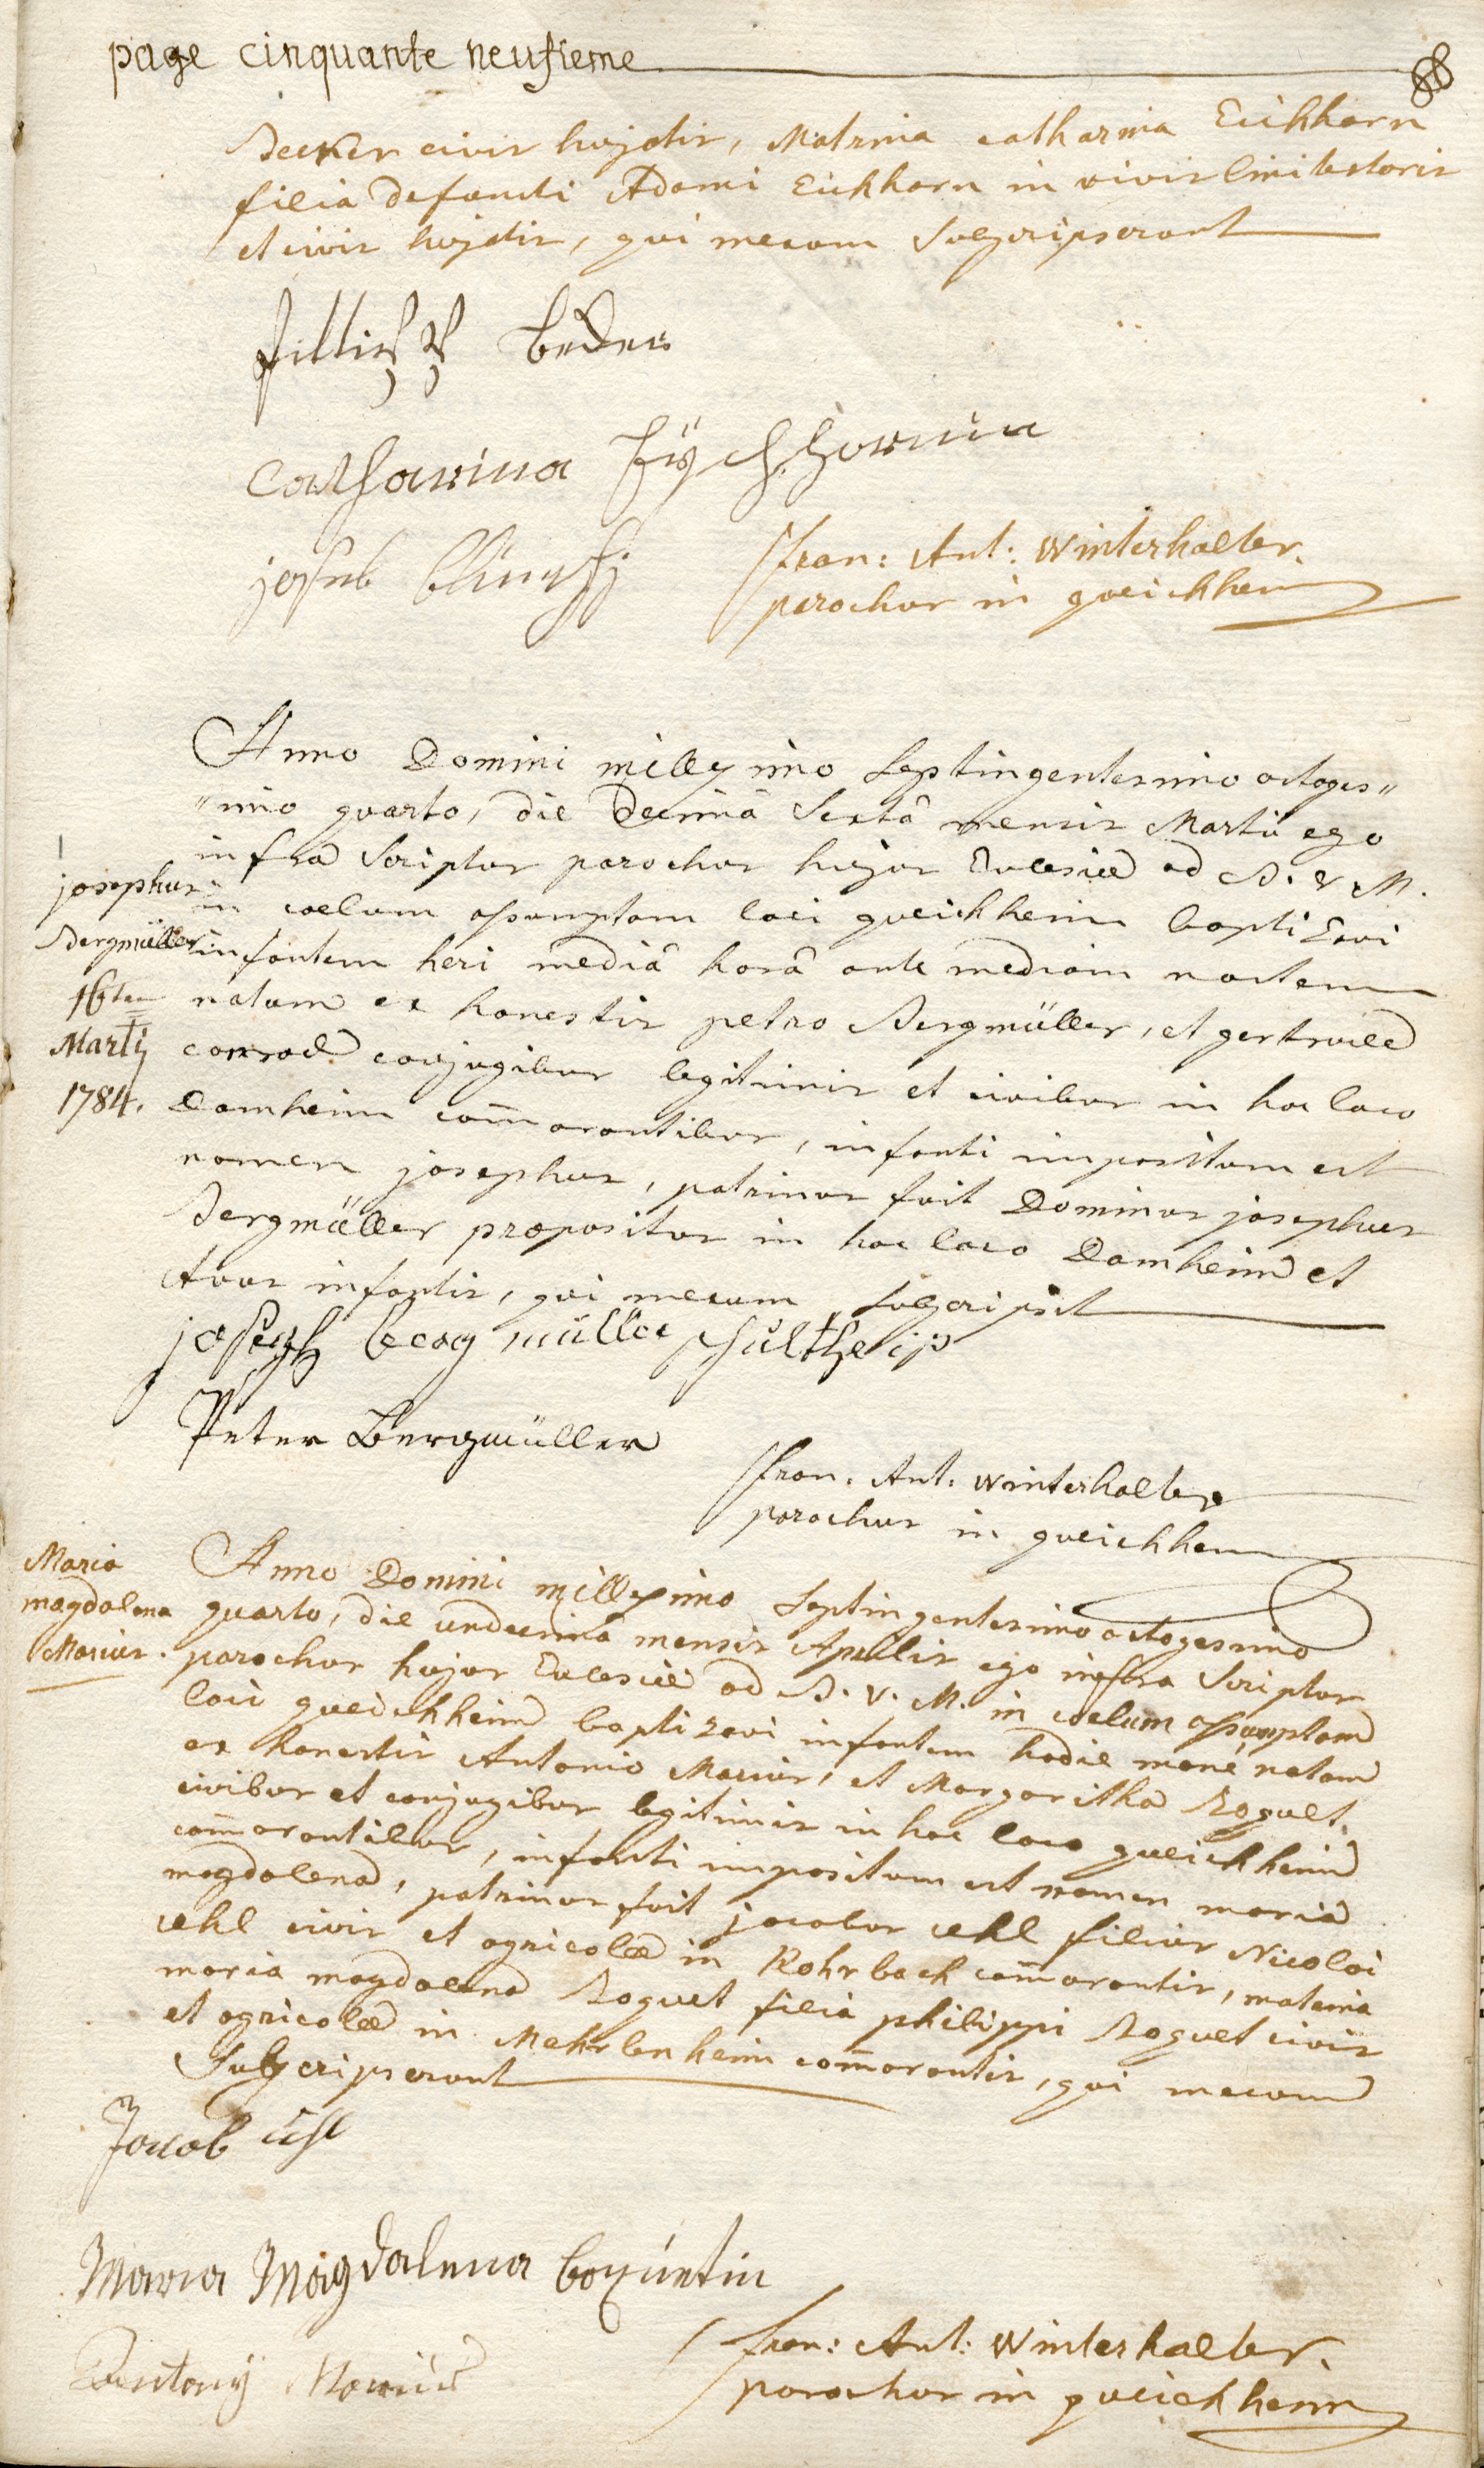 page cinquante neufieme
Becker civis hujatis, Matrina catharina Eichhorn
filia defuncti Adami Eichhorn in vivis linitextoris
et civis hujatis, qui mecum subscripserunt
catharina Eÿchhornin
fran: Ant: Winterhalter.
parochus in queichheim
Anno Domini millesimo septingentesimo octoges„
„imo quarto, die decimâ sextâ mensis Martii ego
infra scriptus parochus hujus Ecclesiæ ad B. V. M.
in coelum assumptam loci queichheim baptizavi
infantem heri mediâ horâ ante mediam noctem
natum ex honestis petro Bergmüller, et gertrude
conrad conjugibus legitimis et civibus in hoc loco
Damheim com̄orantibus, infanti impositum est
nomen josephus, patrinus fuit Dominus josephus
Bergmüller præpositus in hoc loco Damheim et
Avus infantis, qui mecum subscripsit
josephus
Bergmüller
16ten
Martÿ
1784.
joseph bergmüller schultheis
Peter Bergmüller
fran: Ant: Winterhalter
parochus in queichheim
Maria
magdalena
Marius.
Anno Domini millesimo septingentesimo octogesimo
quarto, die undecima mensis Aprilis ego infra scriptus
parochus hujus Ecclesiæ ad B. V. M. in coelum assumptam
loci queichheim baptizavi infantem hodie manè natam
ex honestis Antonio Marius, et Margaritha Boquet,
civibus et conjugibus legitimis in hoc loco queichheim
com̄orantibus, infanti impositum est nomen maria
magdalena, patrinus fuit jacobus uhl filius Nicolai
uhl civis et agricolæ in Rohrbach com̄orantis, matrina
maria magdalena Boquet filia philippi Boquet civis
et agricolæ in Mehrlenheim com̄orantis, qui mecum
subscripserunt
Jacob uhl
Maria Magdalena boquetin
Antony Marius
fran: Ant: Winterhalter.
parochus in queichheim